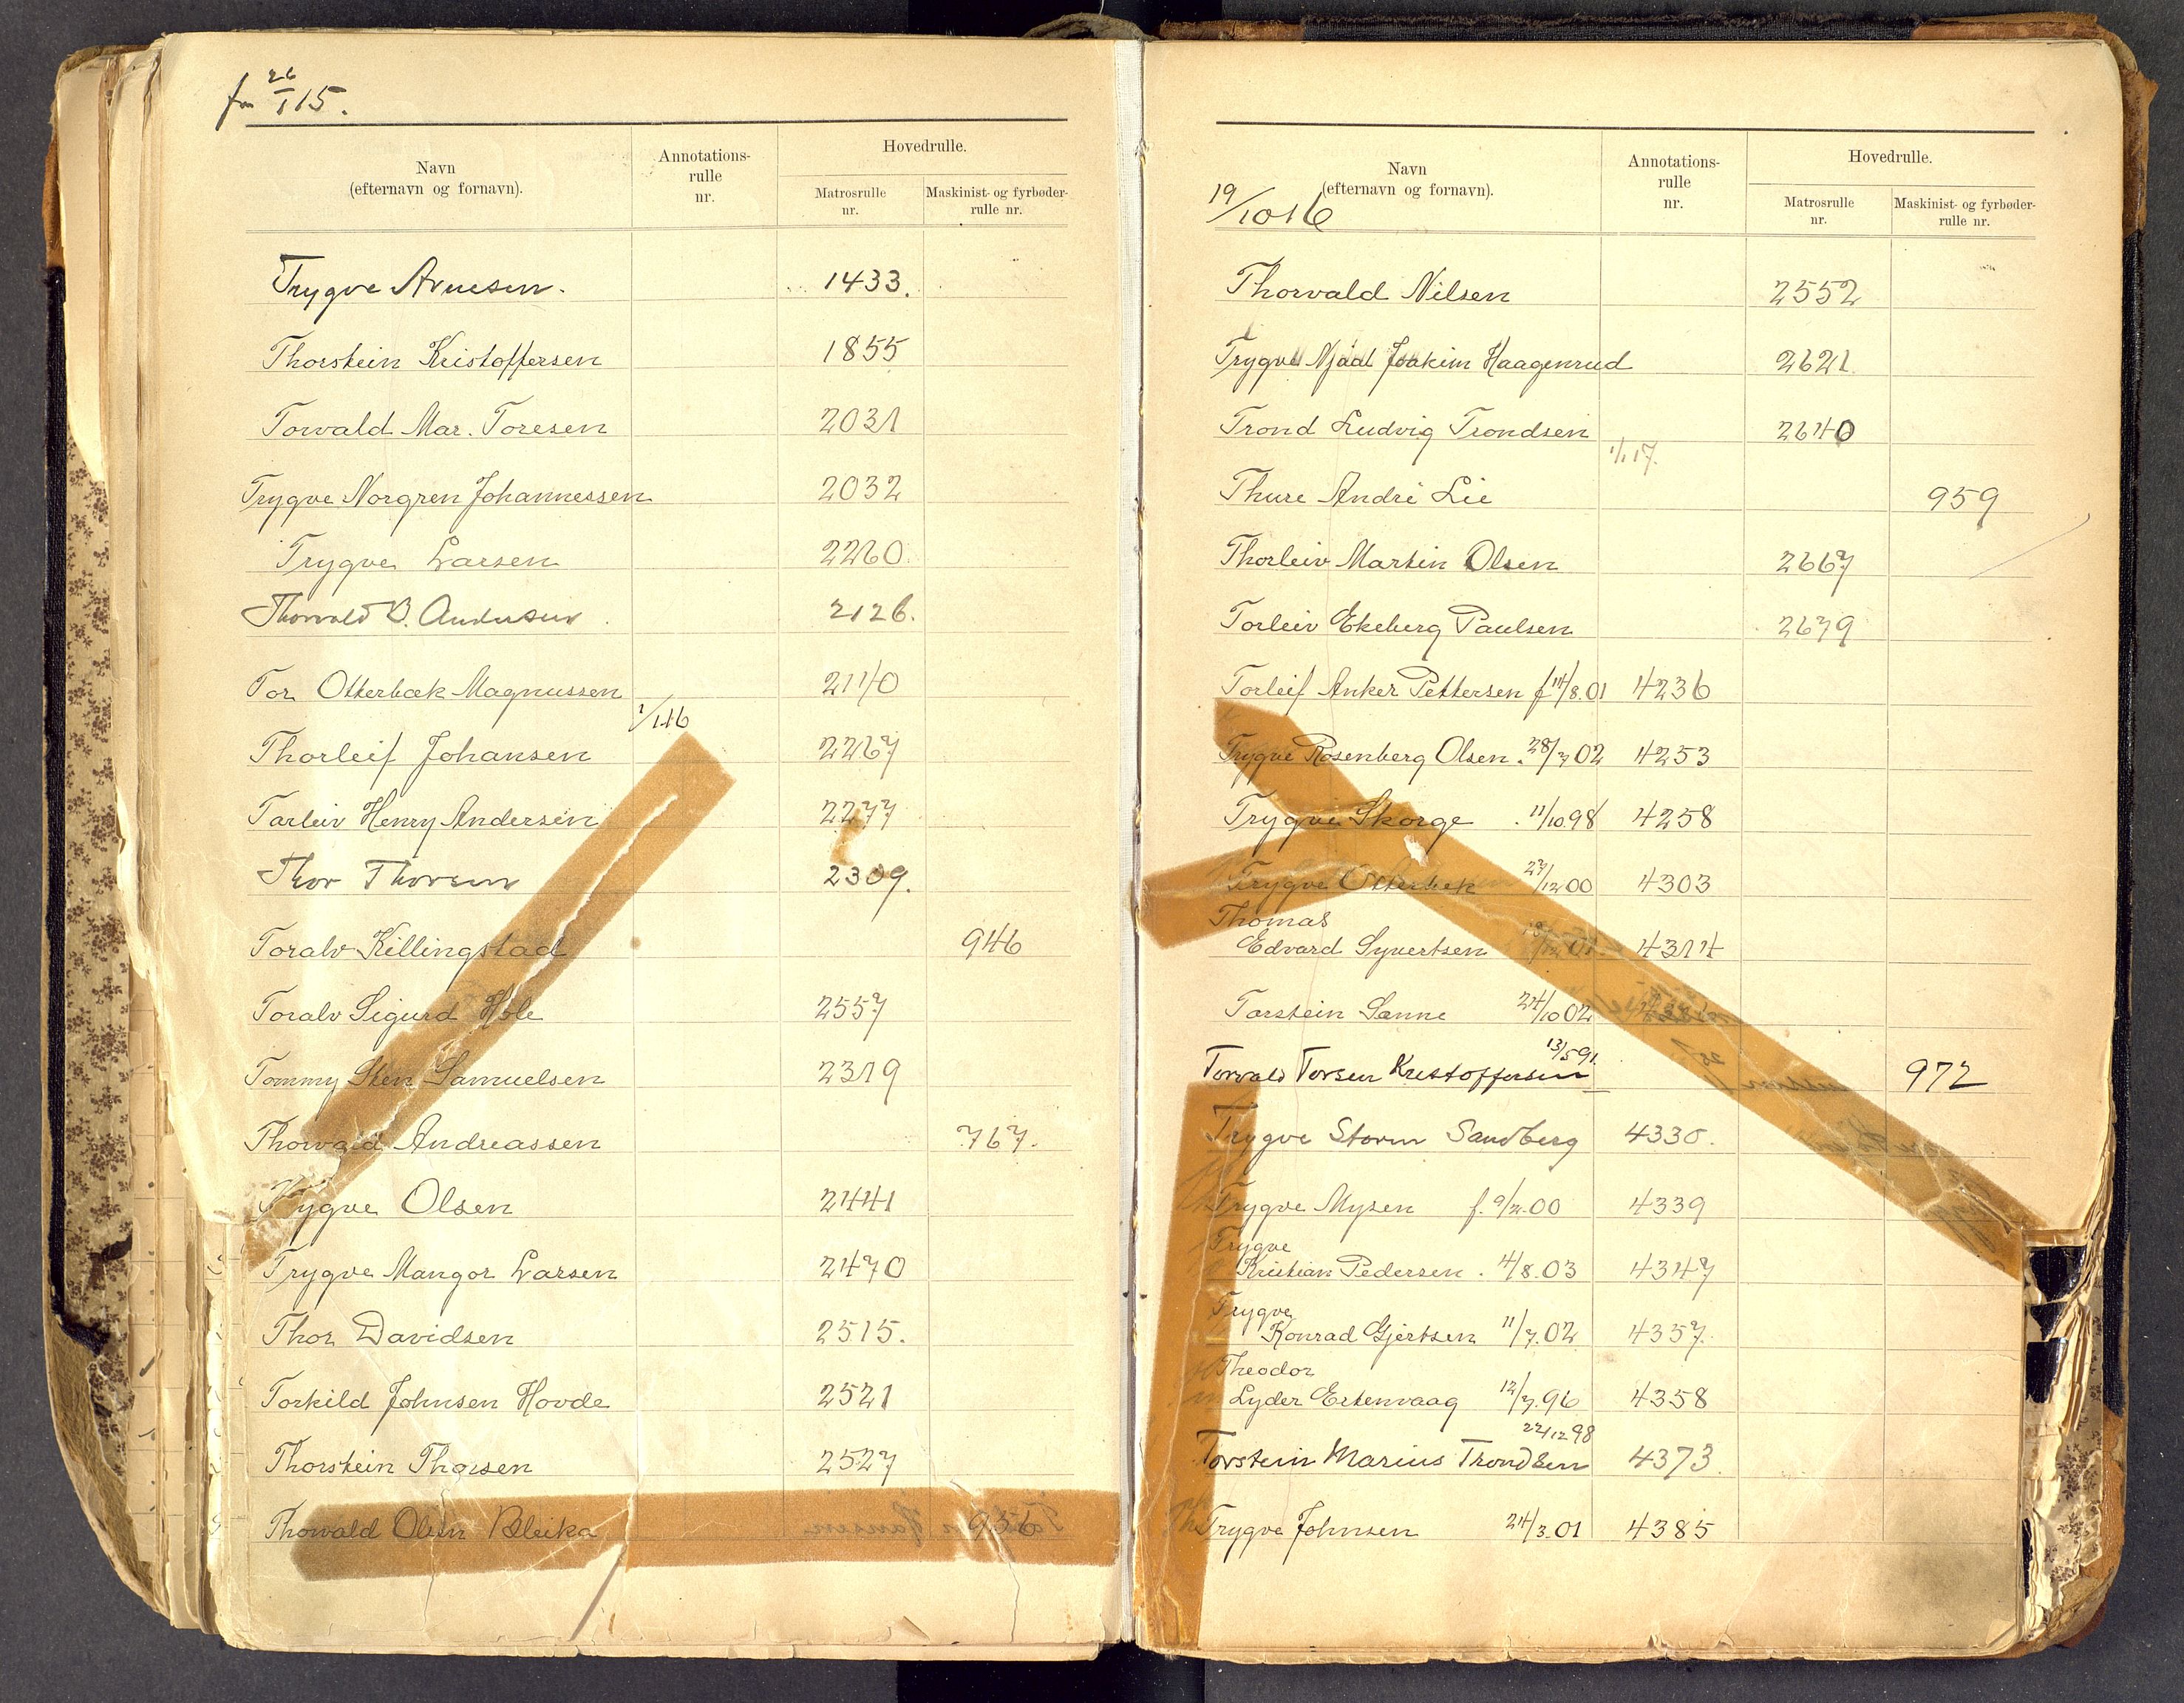 fra 26/1 15.
Navn
(efternavn og fornavn).
Annotations-
rulle
nr.
Hovedrulle.
Matrosrulle
nr.
Maskinist- og fyrbøder-
rulle nr.
Trygve Arnesen. 1433.
Thorstein Kristoffersen 1855
Torvald Mar. Toresen 2031
Trygve Norgren Johannessen 2032
Trygve Larsen 2260
Thorvald B. Andersen 2126.
Tor Otterbæk Magnussen 2140
1/1 16
Thorleif Johansen 2267
Tarleiv Henry Andersen 2277
Thor Thorsen 2309.
Toralv Killingstad 946
Toralv Sigurd Hole 2557
Tommy Sten Samuelsen 2319
Thorvald Andreassen 767.
Trygve Olsen 2441
Trygve Mangor Larsen 2470
Thor Davidsen 2515.
Torkild Johnsen Hovde 2521
Thorstein Thorsen 2527
Thorvald Olsen Bleika 956
Navn
(efternavn og fornavn).
Annotations-
rulle
nr.
Hovedrulle.
Matrosrulle
nr.
Maskinist- og fyrbøder-
rulle nr.
19/10 16
Thorvald Nilsen 2552
Trygve Njaal Joakim Haagenrud 2621
Trond Ludvig Trondsen 2640
1/1 17.
Thure André Lie 959
Thorleiv Martin Olsen 2667
Torleiv Ekeberg Paulsen 2679
Torleif Anker Pettersen f 14/8.01 4236
Trygve Rosenberg Olsen. 28/7 02 4253
Trygve Skorge . 11/10.98 4258
Trygve Otterbek 27/12 00 4303
Thomas
Edvard Syvertsen 4314
Torstein Sanne 24/10 02
13/5 91.
Torvald Torsen Kristoffersen 972
Trygve Storm Sandberg 4330.
Trygve Mysen f. 9/2.00 4339
Trygve
Kristian Pedersen . 4/8.03 4347
Trygve
Konrad Gjertsen 11/7.02 4357.
Theodor
Lyder Estenvaag 12/7.96 4358
22/12 98
Torstein Marius Trondsen 4373.
Trygve Johnsen 24/3.01 4385